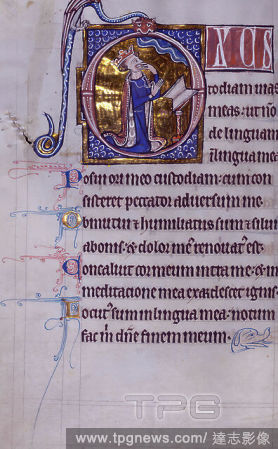 todiam uias
meas: ut nō
de linguam
Posui ori meo custodiam: cum con
sisteret peccator aduersum me.
Obmutui & humiliatus sum & silui
a bonis: & dolor me' renouat' est.
Concaluit cor meum intra me: & in
meditacione mea exardescet ignis.
Locut' sum in lingua mea: notum
fac m̄ dn̄e finem meum.
TPG
www.tpgnews.com/達志影像